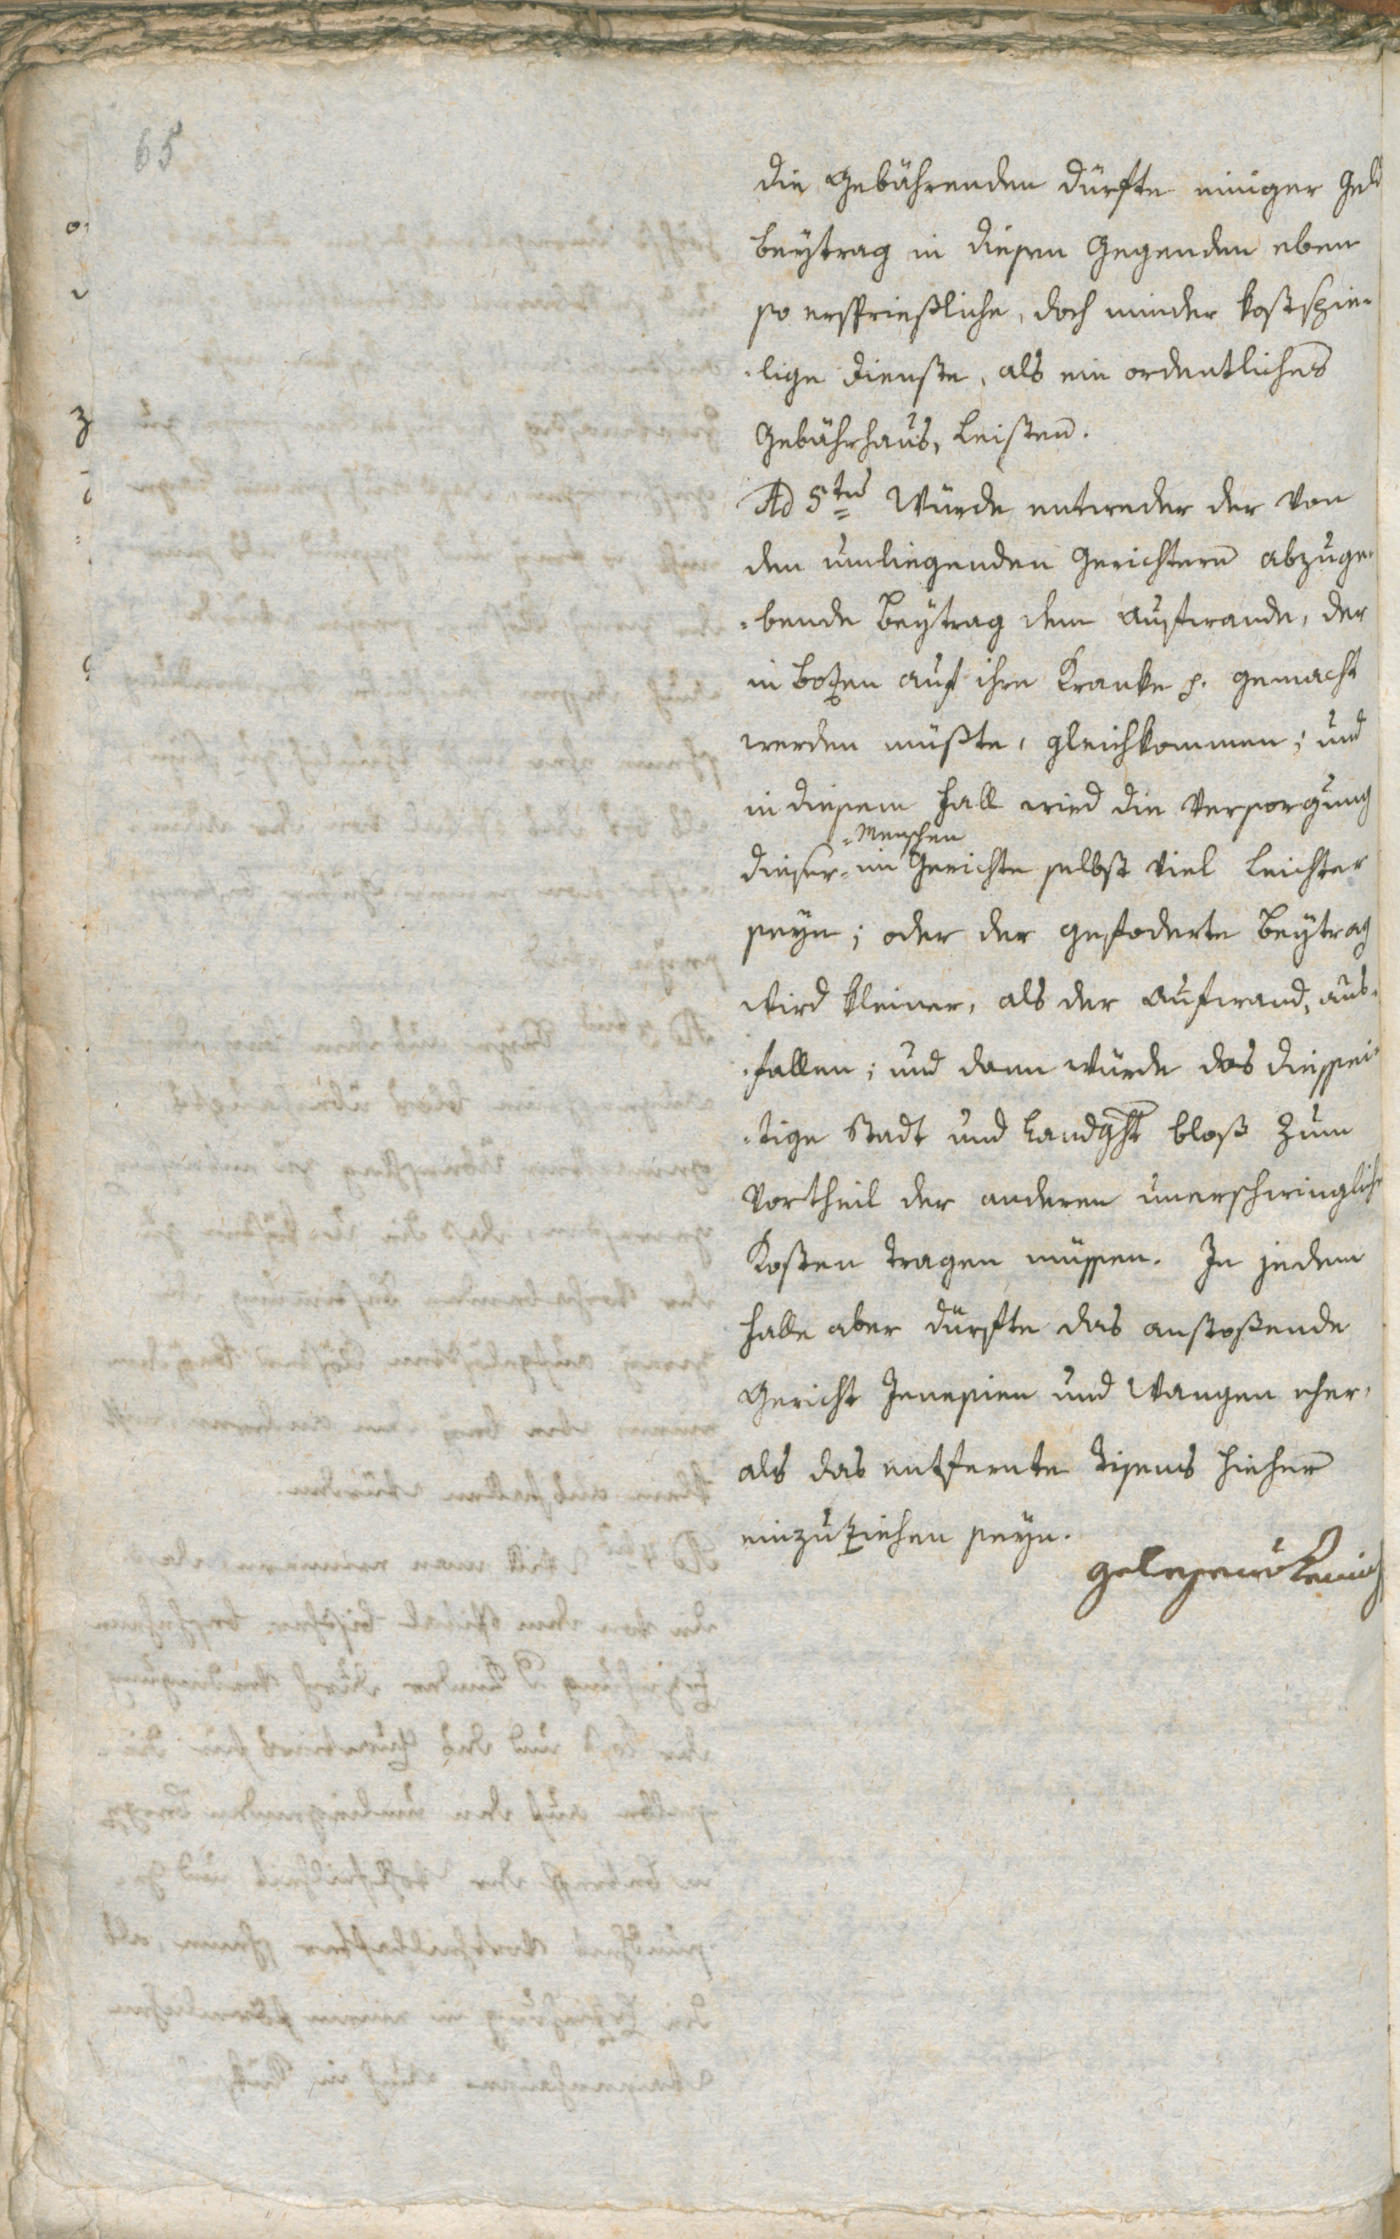 65
die Gebährenden dürfte einiger Geld
beÿtrag in diesen Gegenden eben
so ersprießliche, doch minder kostspie-
-lige Dienste, als ein ordentliches
Gebährhaus, leisten.
Ad 5tus Würde entweder der von
den umliegenden Gerichtern abzuge-
-bende Beÿtrag dem Aufwande, der
in Bozen auf ihre Kranke p. gemacht
werden müßte, gleichkommen; und
in diesem Fall wird die Versorgung
-Menschen
dieser- im Gerichte selbst viel leichter
seÿn; oder der gefoderte Beÿtrag
wird kleiner, als der Aufwand, aus-
-fallen; und dann würde das diessei-
-tige Stadt und Landght bloß zum
Vortheil der anderen unerschwingliche
Kosten tragen müssen. In jedem
Falle aber dürfte das anstoßende
Gericht Jenesien und Wangen eher,
als das entfernte Tisens hieher
einzuziehen seÿn.